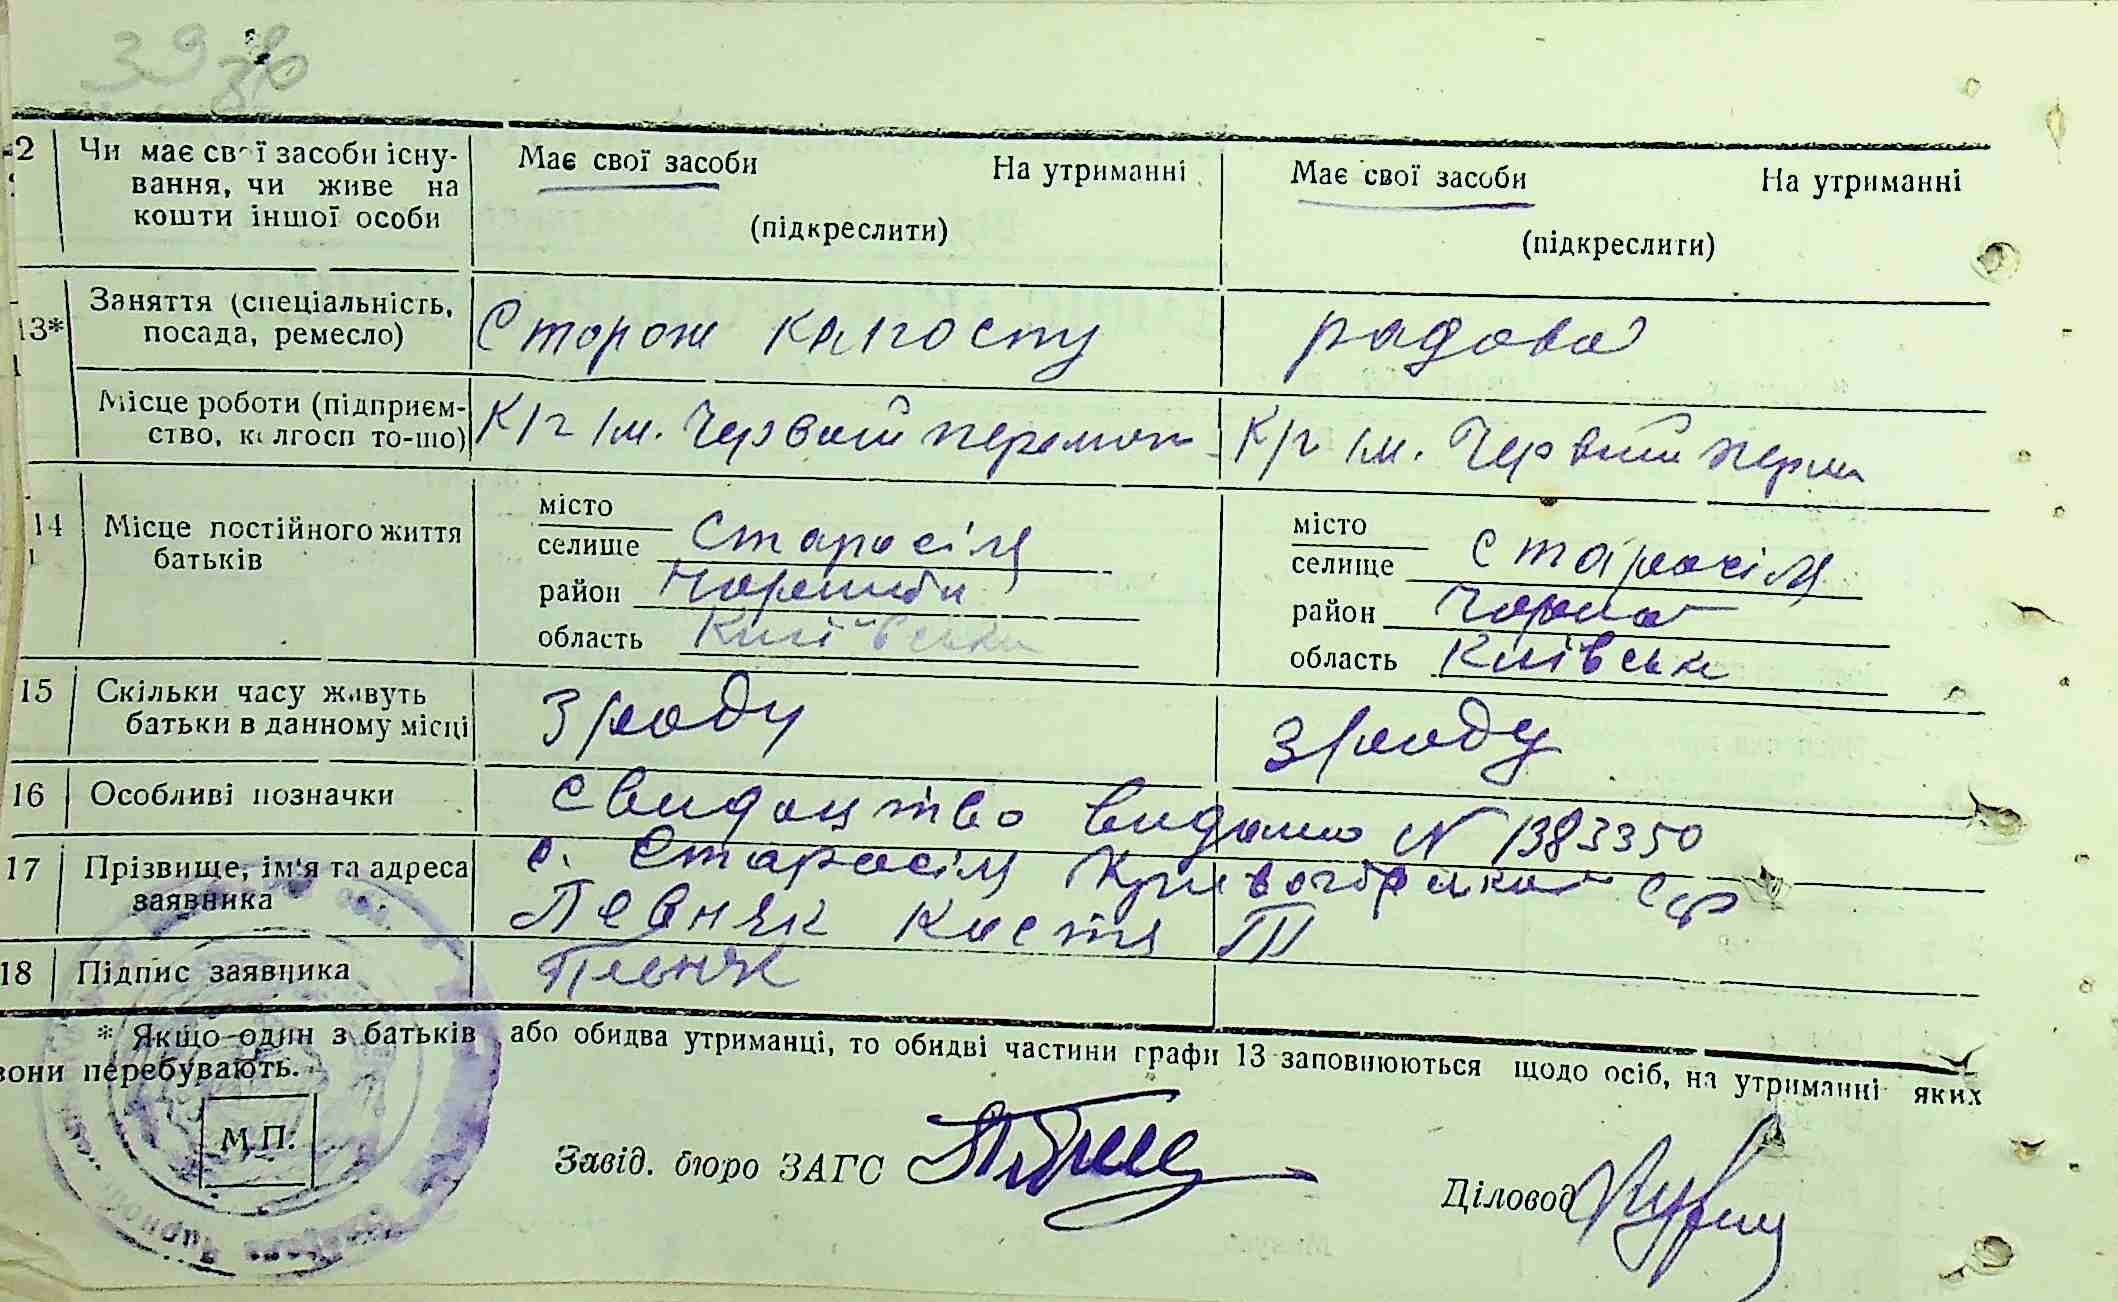 39 зв
2 Чи має свої засоби існу- Має свої засоби На утриманні Має свої засоби На утриманні
вання, чи живе на
кошти іншої особи (підкреслити) (підкреслити)
13* Заняття (спеціальність, посада, ремесло) Сторож калгоспу радова
Місце роботи (підприєм-
ство, колгосп то-що) К/г Ім. Червоний К/г Ім.
14 Місце постійного життя
батьків
місто
селище Старосілля
район
область Київська
місто
селище Старосілля
район Чорноб
область Київськ
15 Скільки часу живуть
батьки в данному місці З роду З роду
16 Особливі позначки Свидоцтво видано N 1383350
17 Прізвище, ім'я та адреса
заявника с. Старосілля
Певняк Костя
18 Підпис заявника Певняк
* Якщо один з батьків або обидва утриманці, то обидві частини графи 13 заповнюються щодо осіб, на утриманні яких
вони перебувають.
М.П.
Завід. бюро ЗАГС
Діловод